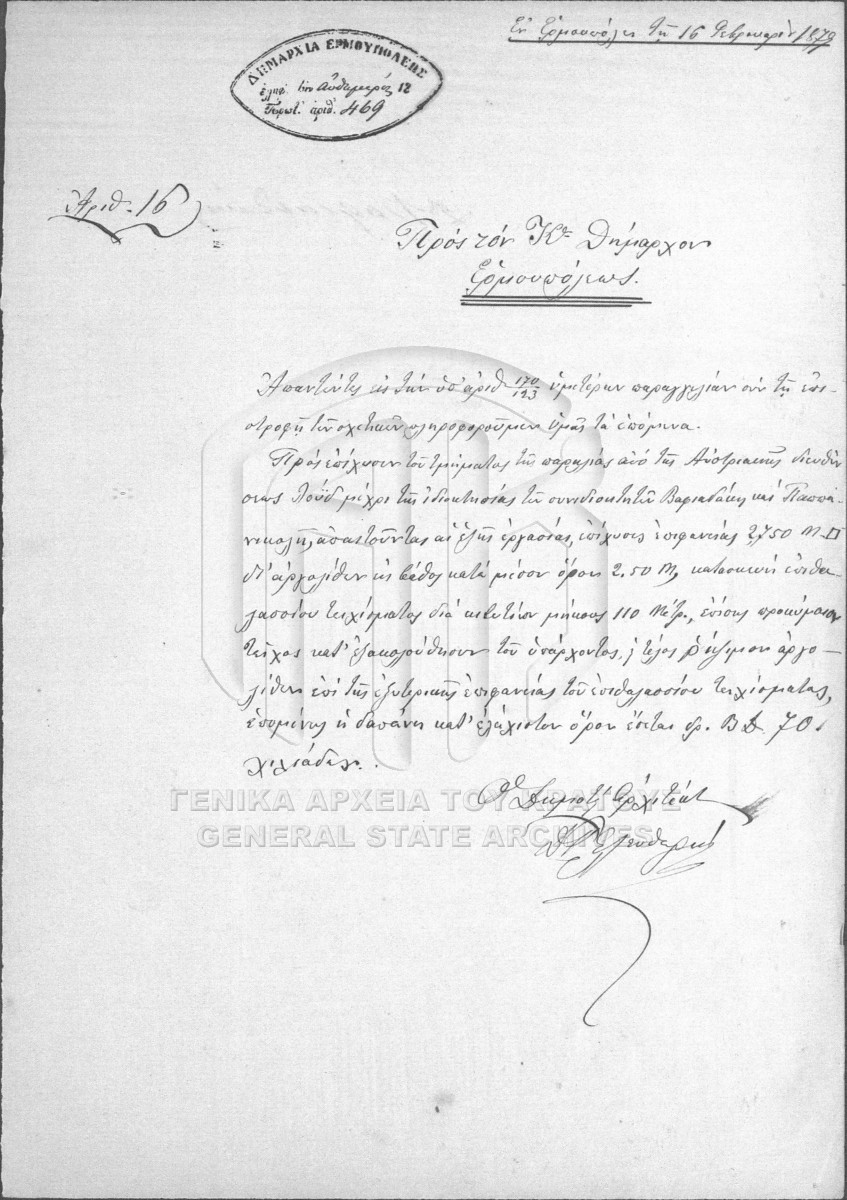 Ἐν Ἑρμουπόλει τῇ 16 Φεβρουαρίου 1879
ΔΗΜΑΡΧΙΑ ΕΡΜΟΥΠΟΛΕΩΣ
ἐλήφ. τὴν Αὐθημερόν
Πρωτ. ἀριθ. 469
Ἀριθ. 16
Πρὸς τὸν Κον Δήμαρχον
Ἑρμουπόλεως.
Ἀπαντῶντες εἰς τὴν ὑπ' ἀριθ. 170/123 ὑμετέραν παραγγελίαν σὺν τῇ ἐπι-
στροφῇ τῶν σχετικῶν πληροφοροῦμεν ὑμᾶς τὰ ἑπόμενα.
Πρὸς ἐπίχωσιν τοῦ τμήματος τῆς παραλίας ἀπὸ τῆς Αὐστριακῆς διευθύν
σεως Λόϋδ μέχρι τῆς ἰδιοκτησίας τῶν συνιδιοκτητῶν Βαφιαδάκη καὶ Παππα-
νικολῆ, ἀπαιτοῦνται αἱ ἑξῆς ἐργασίαι, ἐπίχωσις ἐπιφανείας 2,750 Μ. □
δι' ἀργολίθων εἰς βάθος κατὰ μέσον ὅρον 2.50 Μ, κατασκευὴ ἐπιθα-
λασσίου τειχίσματος διὰ κιβωτίων μήκους 110 Μέτρ., ἐπίσης προκυμαίου
τεῖχος κατ' ἐξακολούθησιν τοῦ ὑπάρχοντος, τέλος ῥίψιμον ἀργο-
λίθων ἐπὶ τῆς ἐξωτερικῆς ἐπιφανείας τοῦ ἐπιθαλασσίου τειχίσματος,
ἑπομένως ἡ δαπάνη κατ' ἐλάχιστον ὅρον ἔσεται δρ. 70
χιλιάδες.
Ὁ Δημοτ. Ἀρχιτέκτ
ΓΕΝΙΚΑ ΑΡΧΕΙΑ ΤΟΥ ΚΡΑΤΟΥΣ
GENERAL STATE ARCHIVES